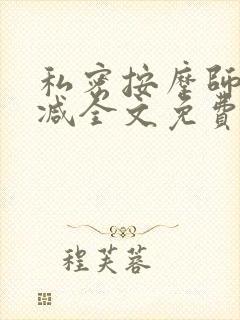 私密按摩師
減全文免費
程芙蓉